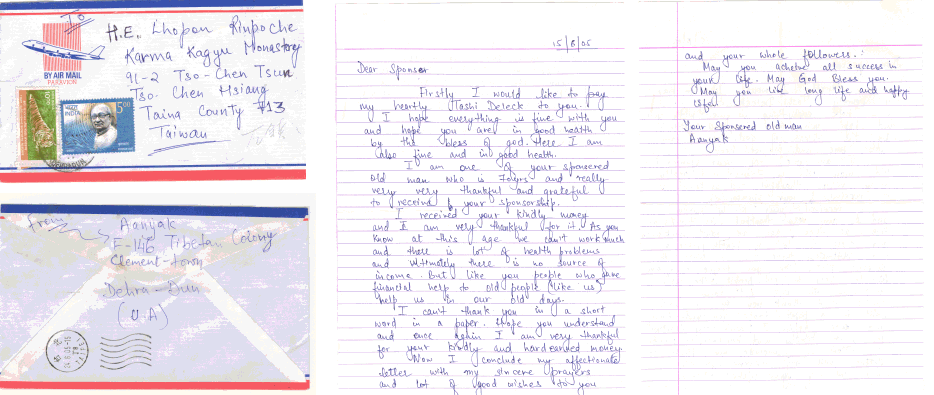 To
H.E. Lhopon Rinpoche
Karma Kagyu Monastery
91-2 Tso-Chen Tsun
Tso-Chen Hsiang
Taina County 713
Taiwan
BY AIR MAIL
PAR AVION
INDIA
5.00
From
Aanyak
F-146 Tibetan Colony
Clement-town
Dehra-Dun
(U.A)
15/8/05
Dear Sponser
Firstly I would like to pay
my heartly Tashi Deleck to you.
I hope everything is fine with you
and hope you are in good health
by the bless of god. Here I am
also fine and in good health.
I am one of your sponsered
old man who is 70yrs and really
very very thankful and grateful
to receive your sponsorship.
I received your kindly money
and I am very thankful for it. As you
know at this age we can't work much
and there is lot of health problems
and ultimately there is no source of
income. But like you people who give
financial help to old people (like us)
help us in our old days.
I can't thank you in a short
word in a paper. Hope you understand
and once again I am very thankful
for your kindly and hardearned money.
Now I conclude my affectionate
letter with my sincere prayers
and lot of good wishes to you
and your whole followers.
May you acheive all success in
your life. May God Bless you.
May you live long life and happy
life.
Your Sponsered old man
Aanyak